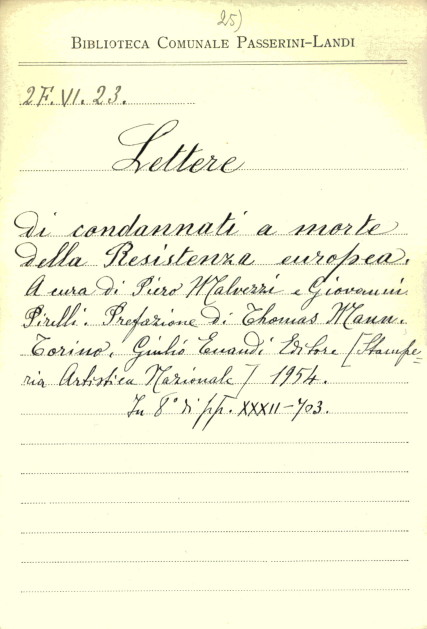 25)
BIBLIOTECA COMUNALE PASSERINI-LANDI
2F. VI. 23.
Lettere
di condannati a morte
della Resistenza europea.
A cura di Piero Malvezzi e Giovanni
Pirelli. Prefazione di Thomas Mann.
Torino, Giulio Einaudi Editore [Stampe=
ria Artistica Nazionale] 1954.
In 8° di pp. XXXII-703.